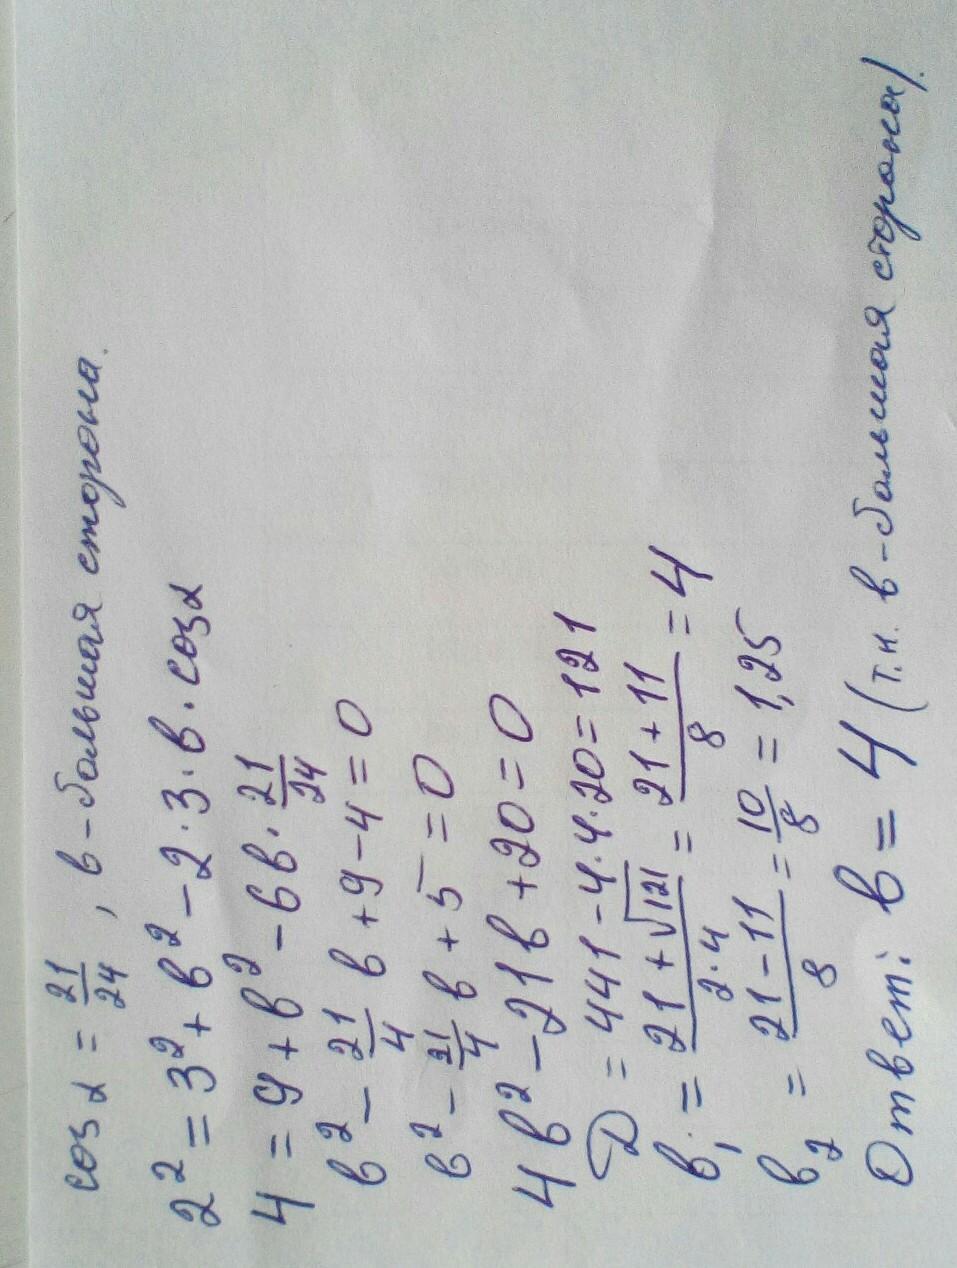 cos α = 21/24 , в - большая сторона.
2² = 3² + в² - 2 · 3 · в · cos α
4 = 9 + в² - 6в · 21/24
в² - 21/4 в + 9 - 4 = 0
в² - 21/4 в + 5 = 0
4в² - 21в + 20 = 0
D = 441 - 4·4·20 = 121
в₁ = (21 + √121)/(2·4) = (21 + 11)/8 = 4
в₂ = (21 - 11)/8 = 10/8 = 1,25
Ответ: в = 4 (т.к. в - большая сторона).